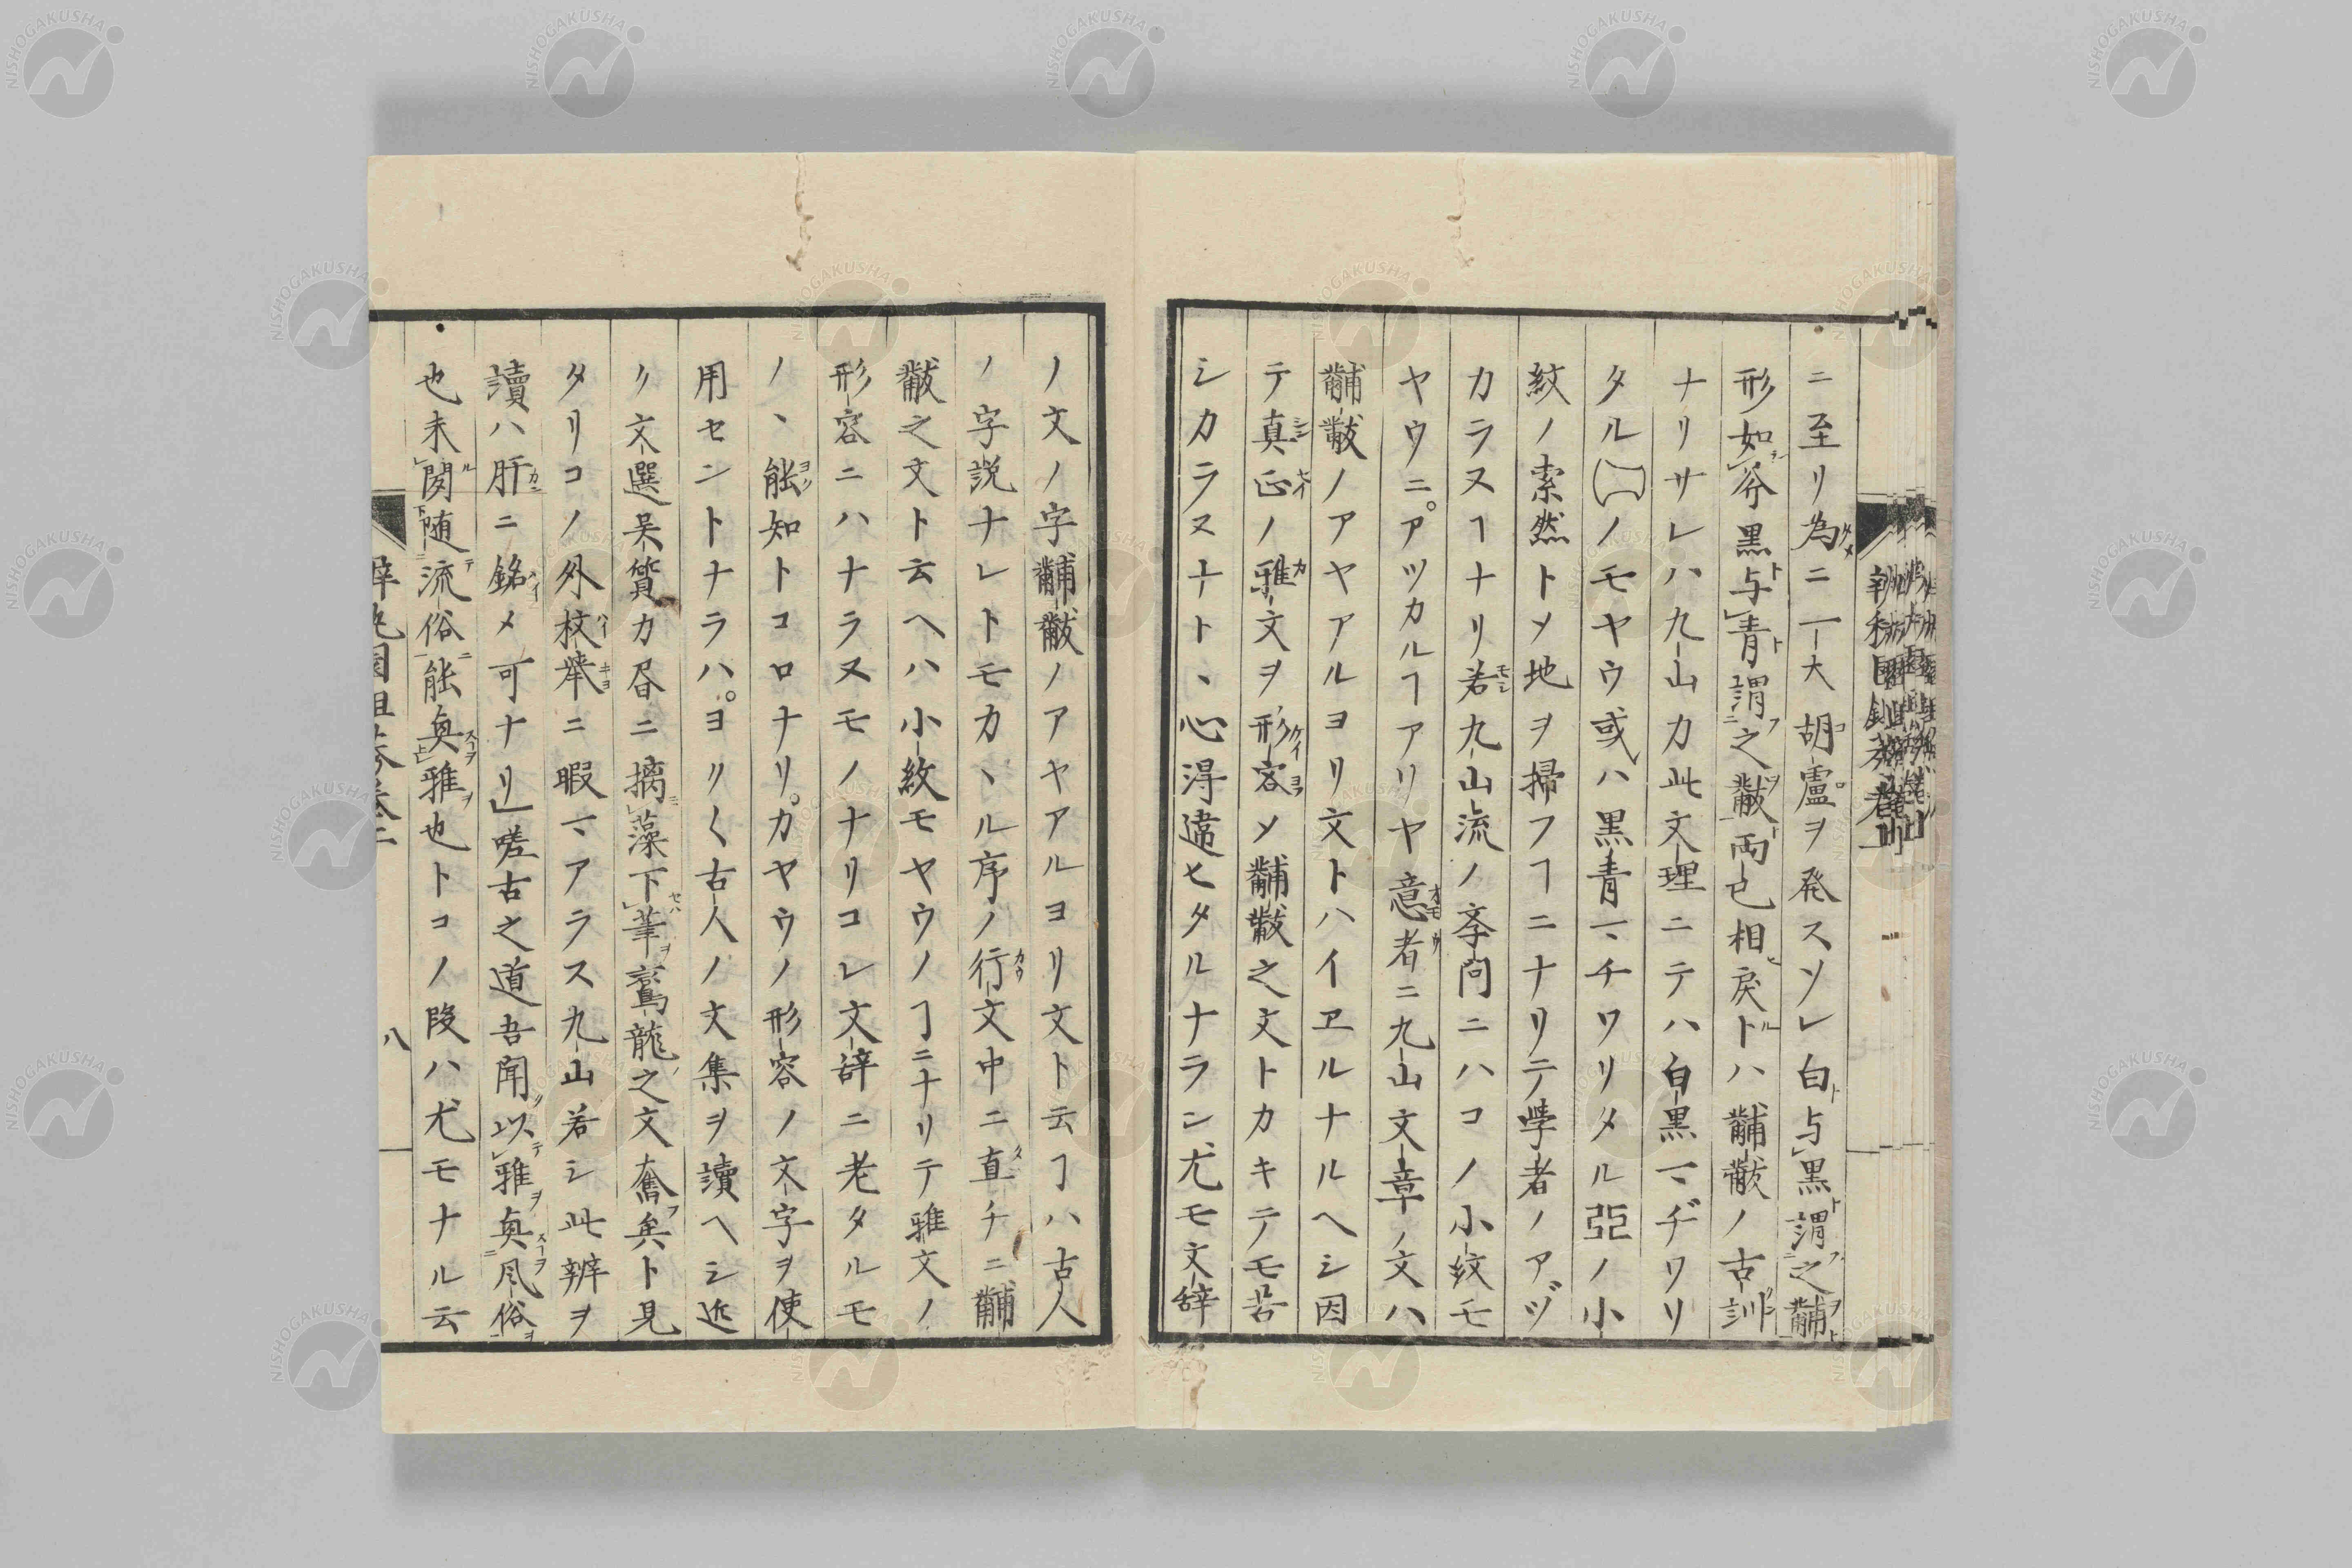 ニ至リ為ニ一大胡盧ヲ発スソレ白与黒謂之黼
形如斧黒与青謂之黻両已相戻トハ黼黻ノ古訓
ナリサレハ九山カ此文理ニテハ白黒マヂワリ
タルノモヤウ或ハ黒青マチワリタル亞ノ小
紋ノ索然トメ地ヲ掃フヿニナリテ學者ノアヅ
カラヌヿナリ若九山流ノ斈問ニハコノ小紋モ
ヤウニ。アツカルヿアリヤ意者ニ九山文章ノ文ハ
黼黻ノアヤアルヨリ文トハイヱルナルヘシ因
テ真正ノ雅文ヲ形容メ黼黻之文トカキテモ苦
シカラヌナト、心淂違ヒタルナラン尤モ文辞
ノ文ノ字黼黻ノアヤアルヨリ文ト云ヿハ古人
ノ字説ナレトモカヽル序ノ行文中ニ直チニ黼
黻之文ト云ヘハ小紋モヤウノヿニナリテ雅文ノ
形容ニハナラヌモノナリコレ文辞ニ老タルモ
ノヽ能知トコロナリ。カヤウノ形容ノ文字ヲ使
用セントナラハ。ヨクく古人ノ文集ヲ讀ヘシ近
ク文選呉質カ昏ニ摛藻下筆鸞龍之文奮矣ト見
タリコノ外枚挙ニ暇マアラス九山若シ此辨ヲ
讀ハ肝ニ銘メ可ナリ嗟古之道吾聞以雅奐風俗
也未聞随流俗能奐雅也トコノ段ハ尤モナル云
八
NISHOGAKUSHA